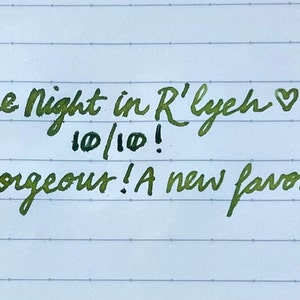 e Night in R'lyeh ♡
10/10!
orgeous! A new favo